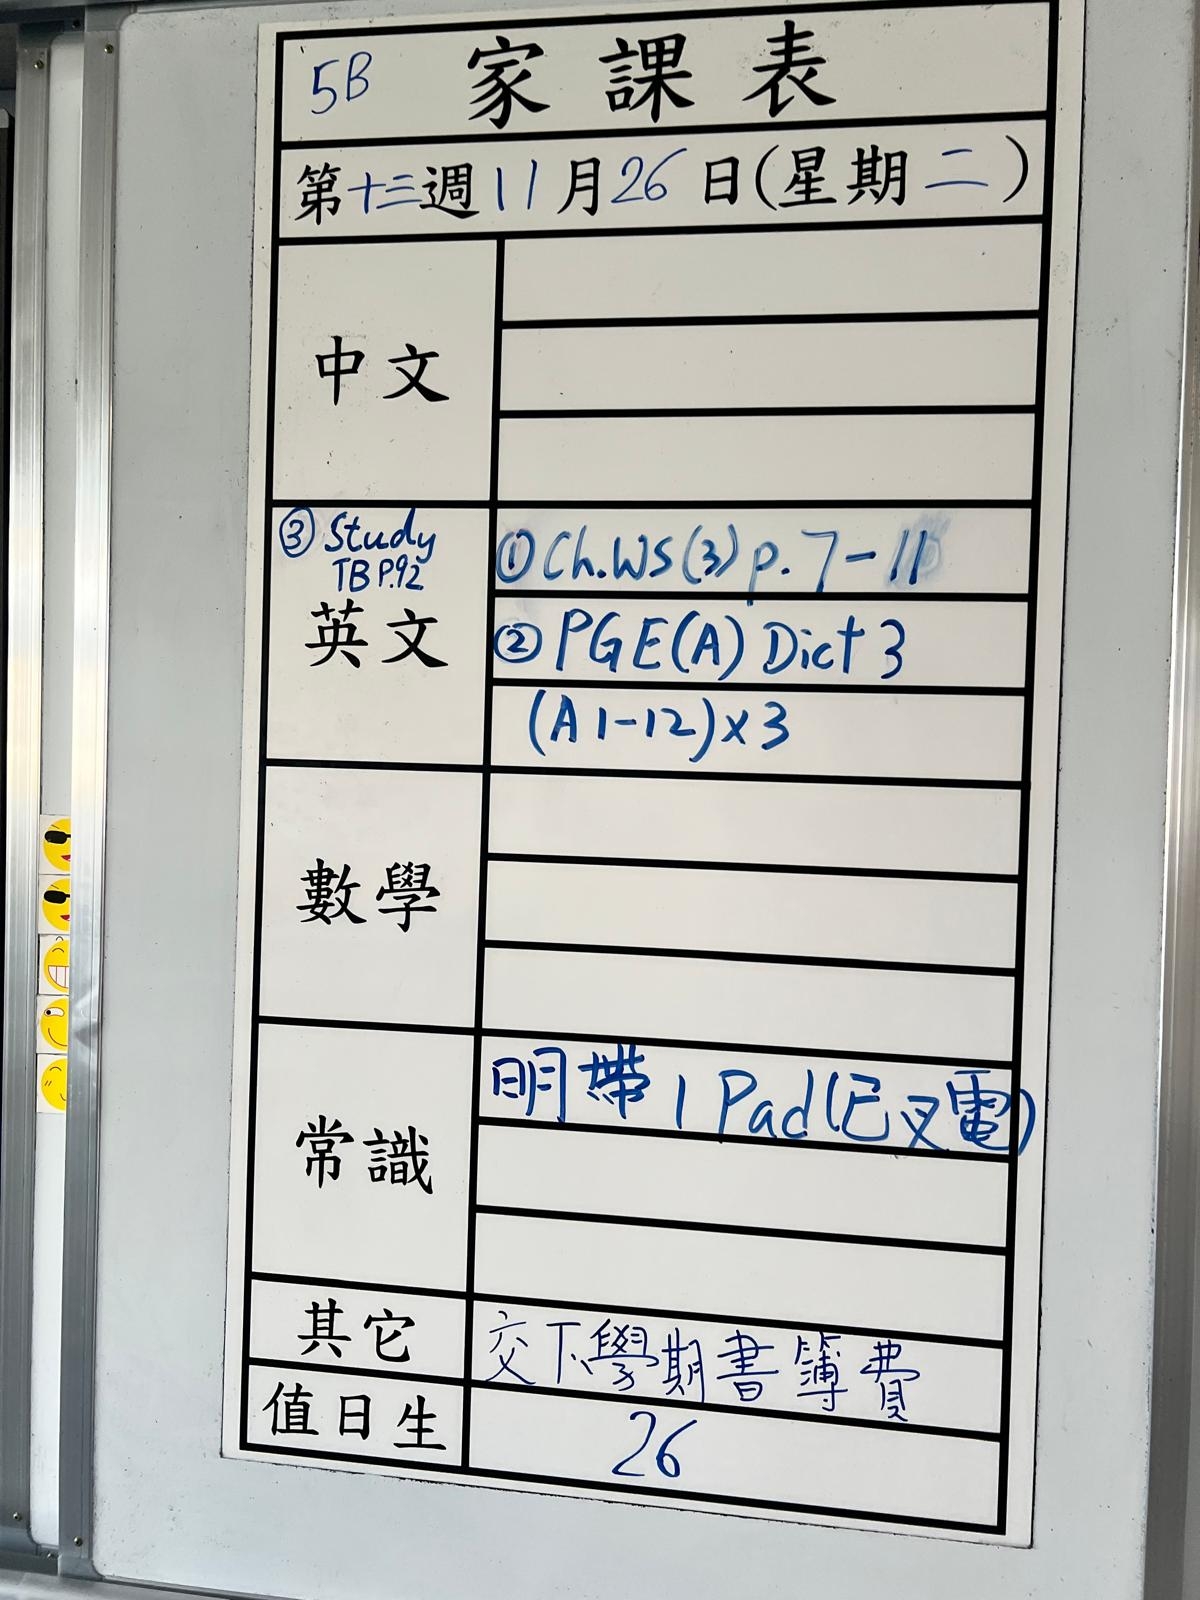 5B 家課表
第十三週11月26日(星期二)
中文
③ Study
TB P.92
英文
① Ch.WS(3) p. 7-11
② PGE(A) Dict 3
(A 1-12)x3
數學
常識
明帶 iPad(已叉電)
其它
交下學期書簿費
值日生
26